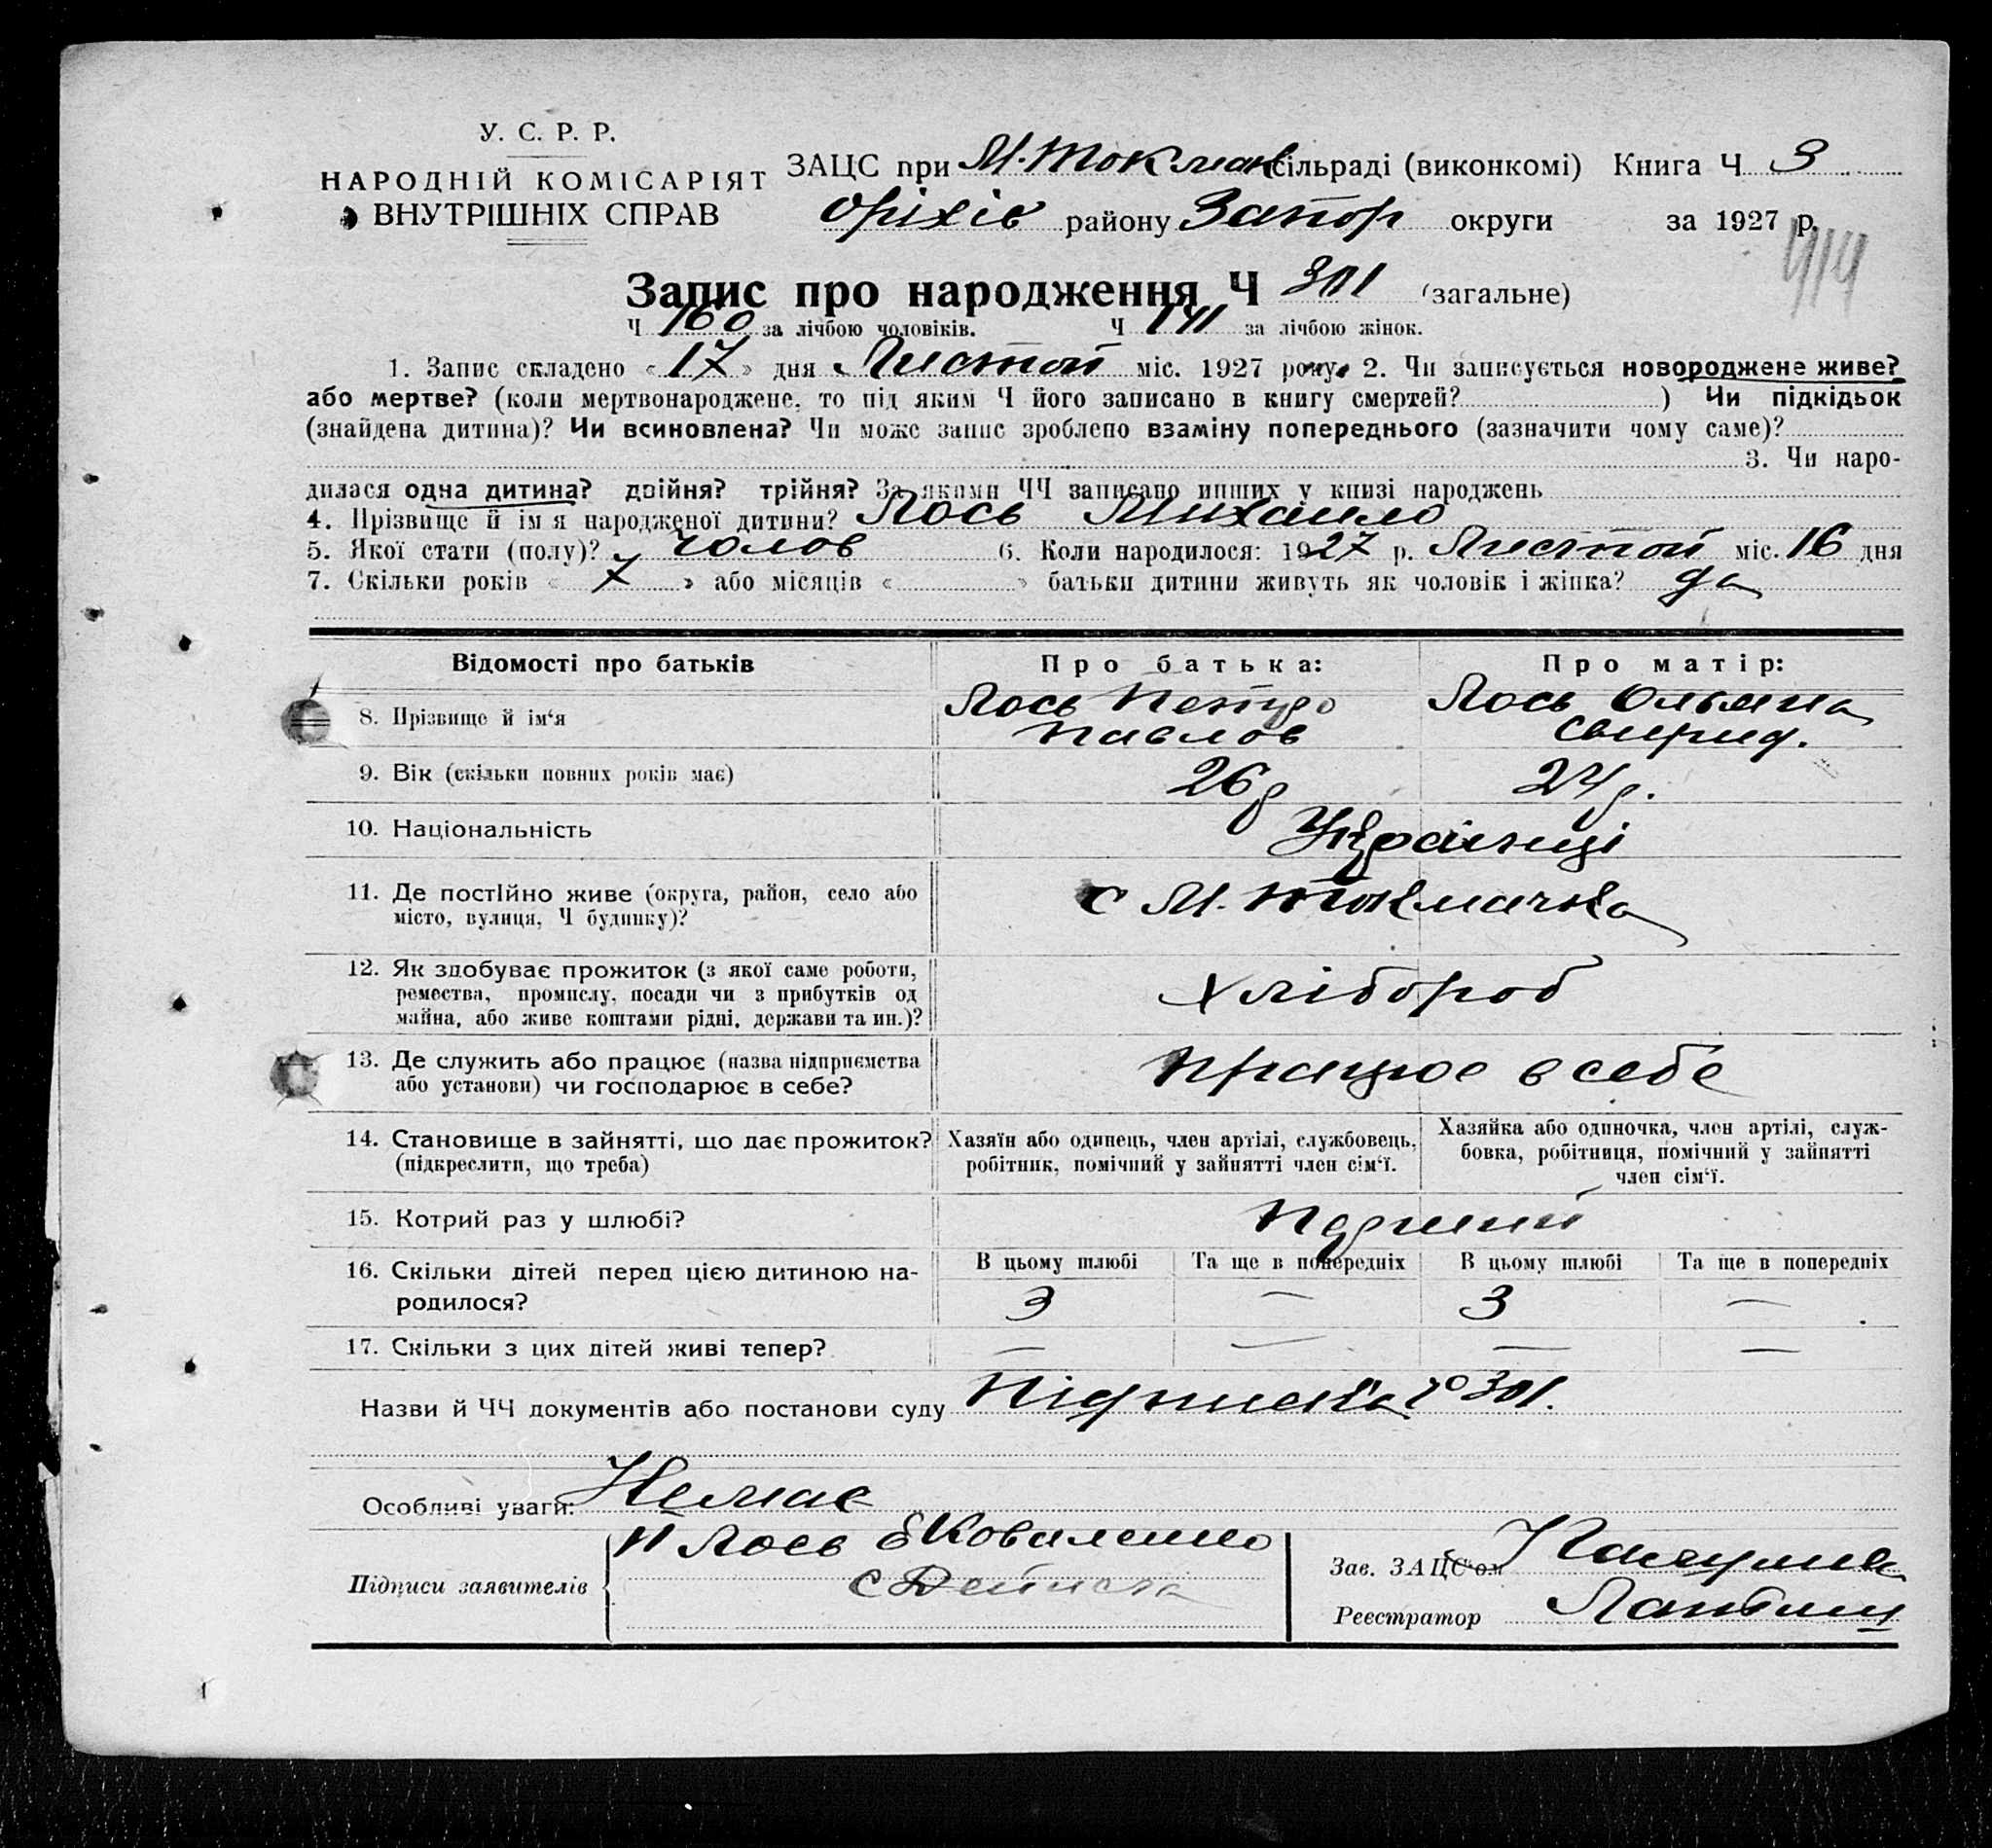 У. С. Р. Р.
НАРОДНІЙ КОМІСАРІЯТ
ВНУТРІШНІХ СПРАВ
ЗАЦС при М. Токмач сільраді (виконкомі) Книга Ч 3
Оріхів району Запор округи за 1927 р.
414
Запис про народження Ч 301 (загальне)
Ч 160 за лічбою чоловіків. Ч 141 за лічбою жінок.
1. Запис складено «17» дня Листоп міс. 1927 року. 2. Чи записується новороджене живе?
або мертве? (коли мертвонароджене, то під яким Ч його записано в книгу смертей? ) Чи підкідьок
(знайдена дитина)? Чи всиновлена? Чи може запис зроблено взаміну попереднього (зазначити чому саме)?
3. Чи наро-
дилася одна дитина? двійня? трійня? За якими ЧЧ записано инших у книзі народжень
4. Прізвище й ім'я народженої дитини? Лось Михайло
5. Якої стати (полу)? Чолов 6. Коли народилося: 1927 р. Листоп міс. 16 дня
7. Скільки років « 7 » або місяців « » батьки дитини живуть як чоловік і жінка? да
Відомості про батьків Про батька: Про матір:
8. Прізвище й ім'я Лось Петро Павлов Лось Ольяна Свирид.
9. Вік (скільки повних років має) 26 р 24 р.
10. Національність Українці
11. Де постійно живе (округа, район, село або
місто, вулиця, Ч будинку)? с М. Токмачка
12. Як здобуває прожиток (з якої саме роботи,
ремества, промислу, посади чи з прибутків од
майна, або живе коштами рідні, держави та ин.)? Хлібороб
13. Де служить або працює (назва підприємства
або установи) чи господарює в себе? Працює в себе
14. Становище в зайнятті, що дає прожиток?
(підкреслити, що треба)
Хазяїн або одинець, член артілі, службовець,
робітник, помічний у зайнятті член сім'ї.
Хазяйка або одиночка, член артілі, служ-
бовка, робітниця, помічний у зайнятті
член сім'ї.
15. Котрий раз у шлюбі? Перший
16. Скільки дітей перед цією дитиною на-
родилося?
В цьому шлюбі Та ще в попередніх В цьому шлюбі Та ще в попередніх
3 — 3 —
17. Скільки з цих дітей живі тепер? — — — —
Назви й ЧЧ документів або постанови суду Підписка № 301.
Особливі уваги: Немає
Підписи заявителів П Лось Є Коваленко
Зав. ЗАЦС'ом
Реєстратор